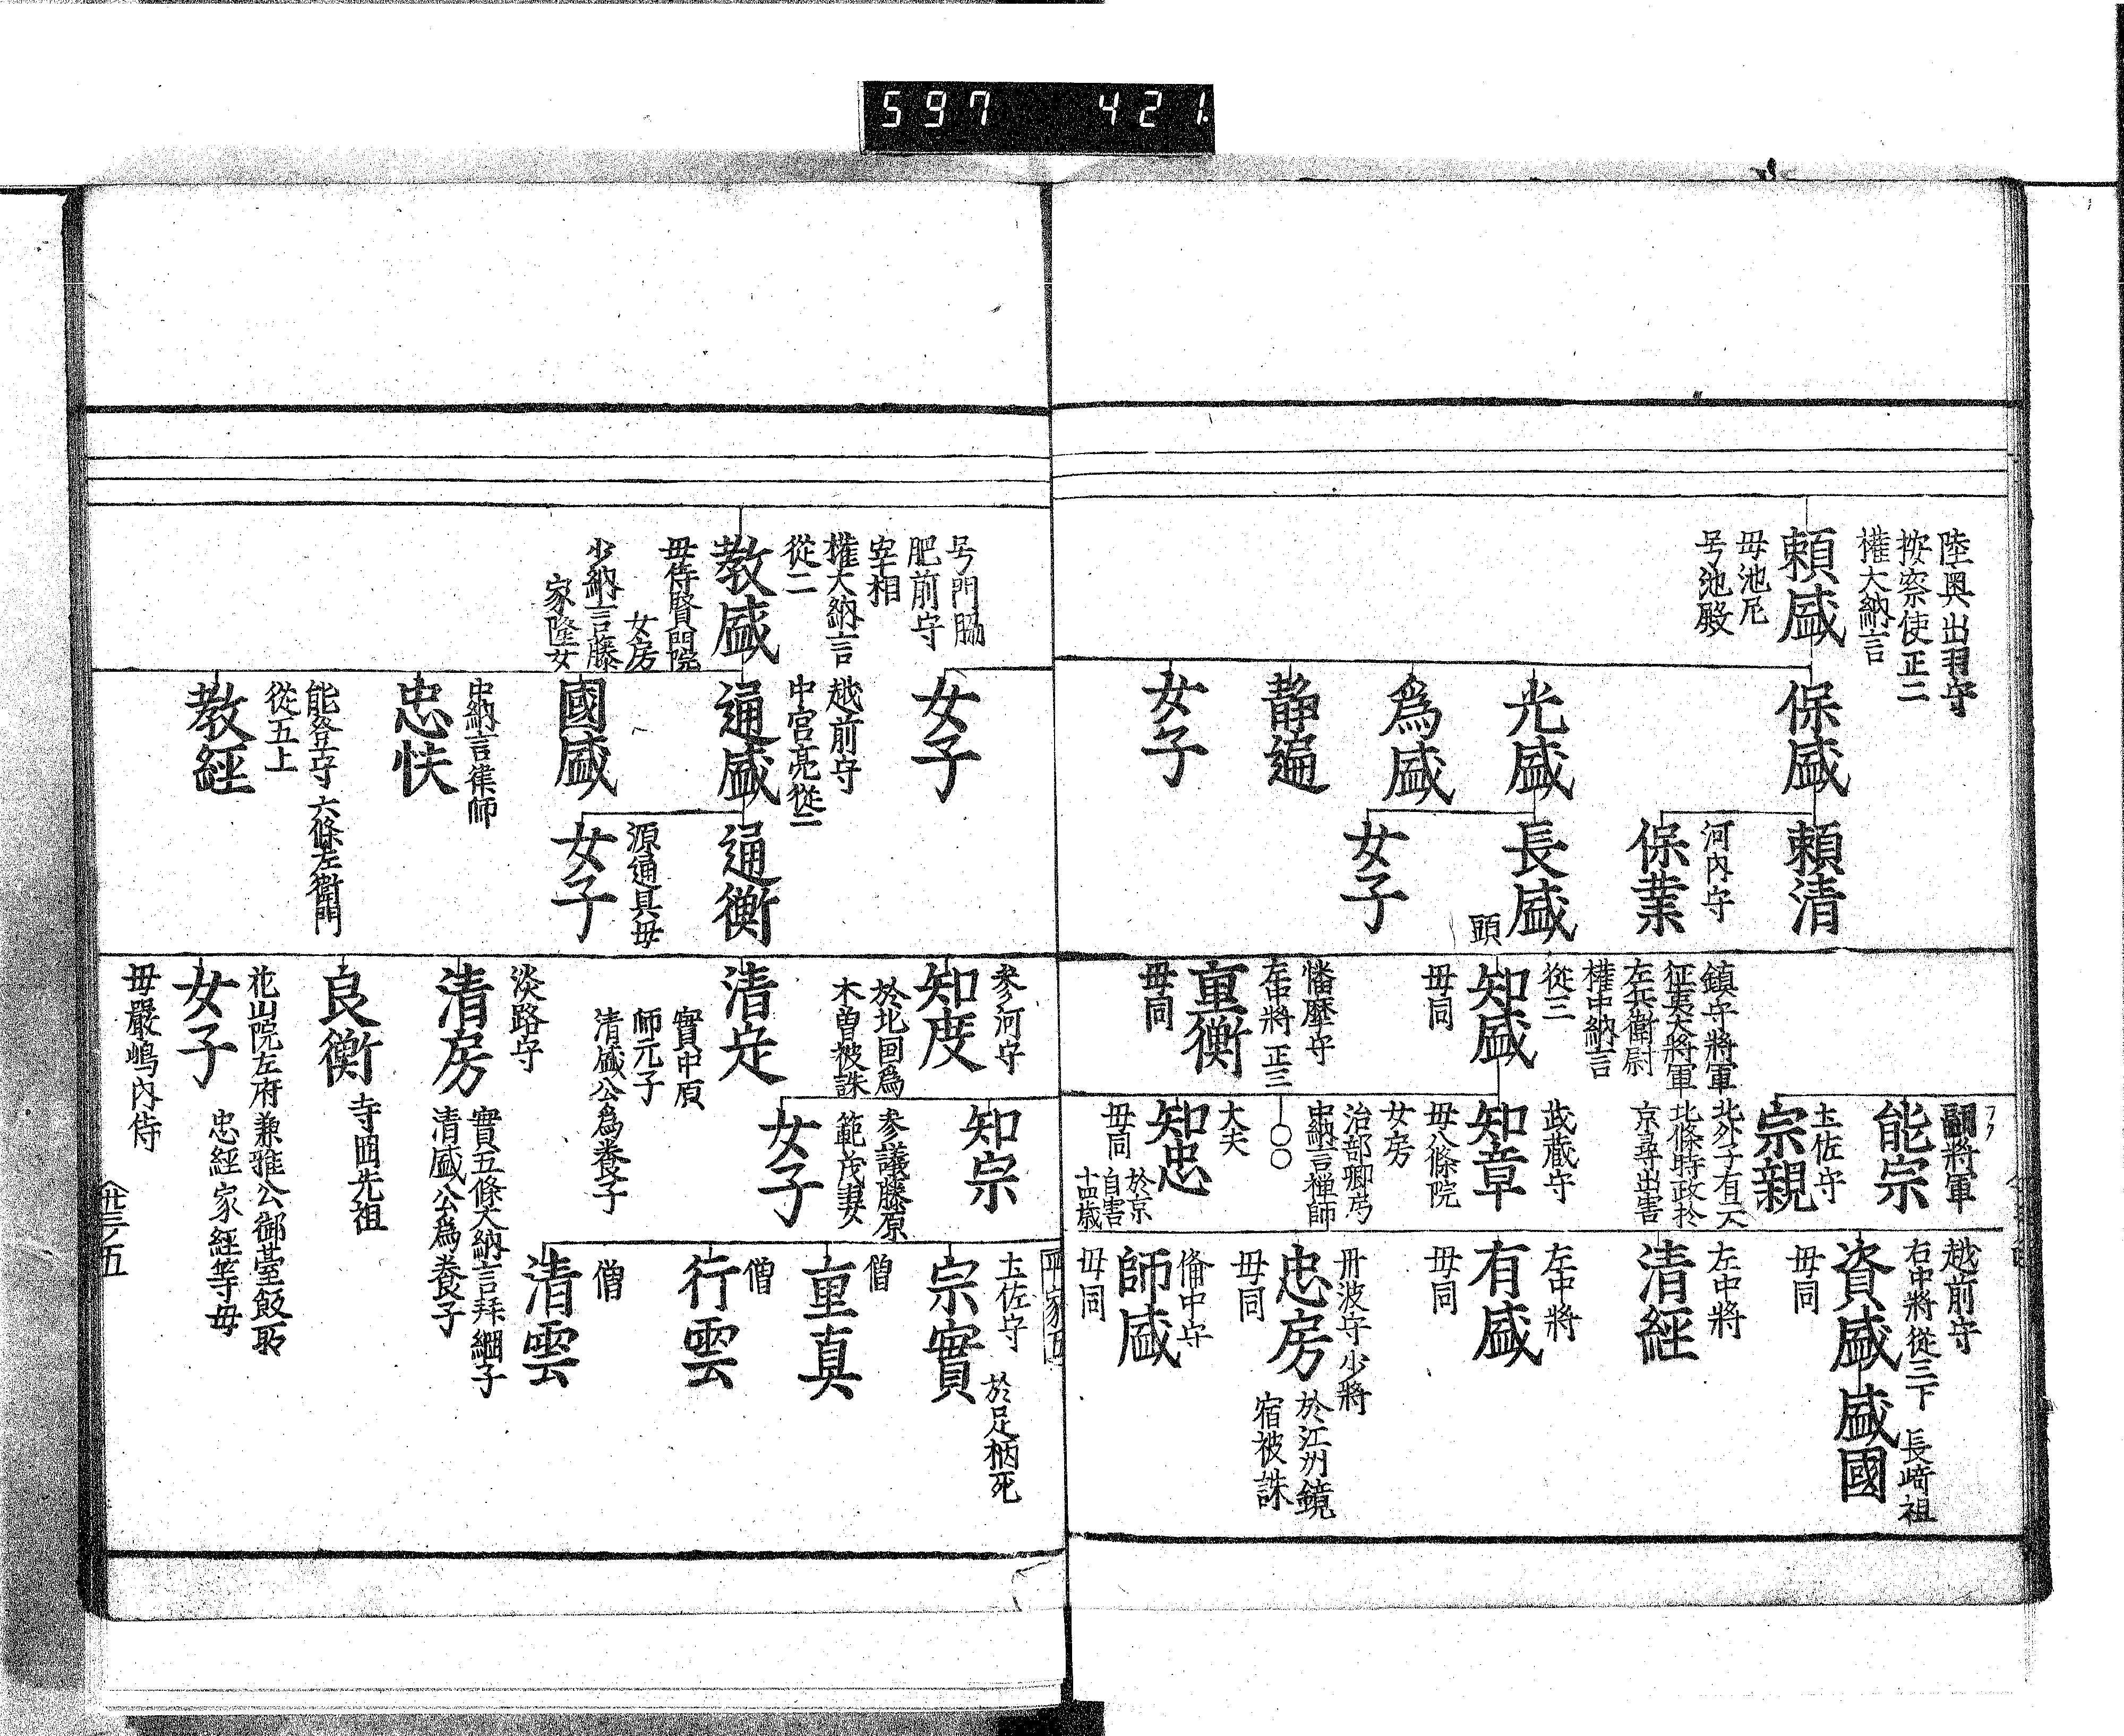 597 421.
陸奥出羽守
按察使正二
權大納言
頼盛
母池尼
号池殿
保盛
光盛
爲盛
静遍
女子
頼清
河内守
保業
長盛
女子
鎮守將軍
征夷大將軍
左兵衛尉
權中納言
從三
知盛
頭
母同
幡磨守
左中將正三
重衡
母同
副將軍
能宗
土佐守
宗親
北條時政於
京尋出害
武蔵守
知章
母八條院
女房
治部卿局
中納言禅師
〇〇
大夫
知忠
母同
於京
自害
十四歳
越前守
右中將從三下
資盛
母同
長崎祖
盛國
左中將
清經
左中將
有盛
母同
丹波守少將
忠房
母同
於江州鏡
宿被誅
備中守
師盛
母同
平家五
号門脇
肥前守
宰相
權大納言
從二
教盛
母待賢門院
女房
少納言藤
家隆女
女子
越前守
中宮亮從三
通盛
國盛
中納言隼師
忠快
能登守 六條左衛門
從五上
教經
通衡
源通具母
女子
参河守
知度
於北国爲
木曽被誅
清定
實中原
師元子
清盛公爲養子
淡路守
清房
實五條大納言拜綱子
清盛公爲養子
良衡
寺岡先祖
花山院左府兼雅公御䑓飯取
女子
忠經家經等母
母嚴嶋内侍
知宗
参議藤原
範茂妻
女子
土佐守
宗實
於足柄死
僧
重真
僧
行雲
僧
清雲
廿三ノ五